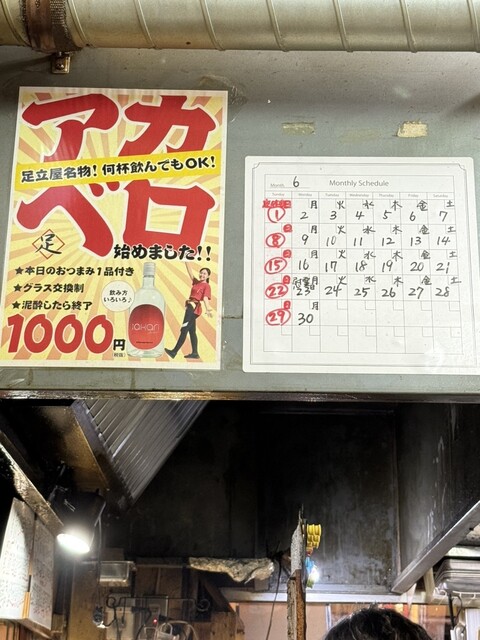 アカ
足立屋名物！何杯飲んでもOK！
ベロ
足
始めました！！
★本日のおつまみ1品付き
★グラス交換制
★泥酔したら終了
飲み方
いろいろ♪
1000円
(税抜)
Month 6 Monthly Schedule
Sunday Monday Tuesday Wednesday Thursday Friday Saturday
月 火 水 木 金 土
1 2 3 4 5 6 7
日 月 火 水 木 金 土
8 9 10 11 12 13 14
日 月 火 水 木 金 土
15 16 17 18 19 20 21
日 火 水 木 金 土
22 23 24 25 26 27 28
日 月
29 30